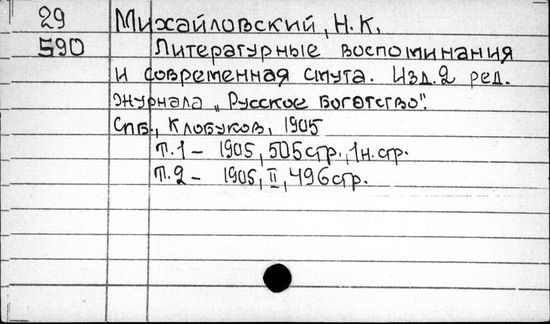 29 Михайловский, Н.К.
590 Литературные воспоминания
и современная смута. Изд.2 ред.
журнала „Русское богатство".
Спб., Клобуков, 1905
т.1 - 1905, 505 стр., 1н.стр.
т.2 - 1905, II, 496 стр.